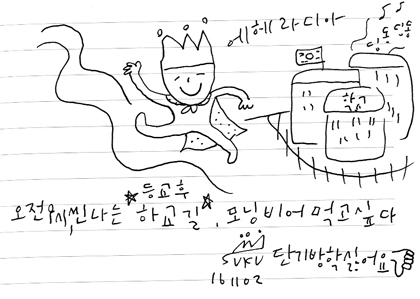 에헤라디아
딩동
딩동
학교
등교후
오전9시, 씬나는 하교길, 모닝비어 먹고싶다
SUKU 단기방학싫어요
161102